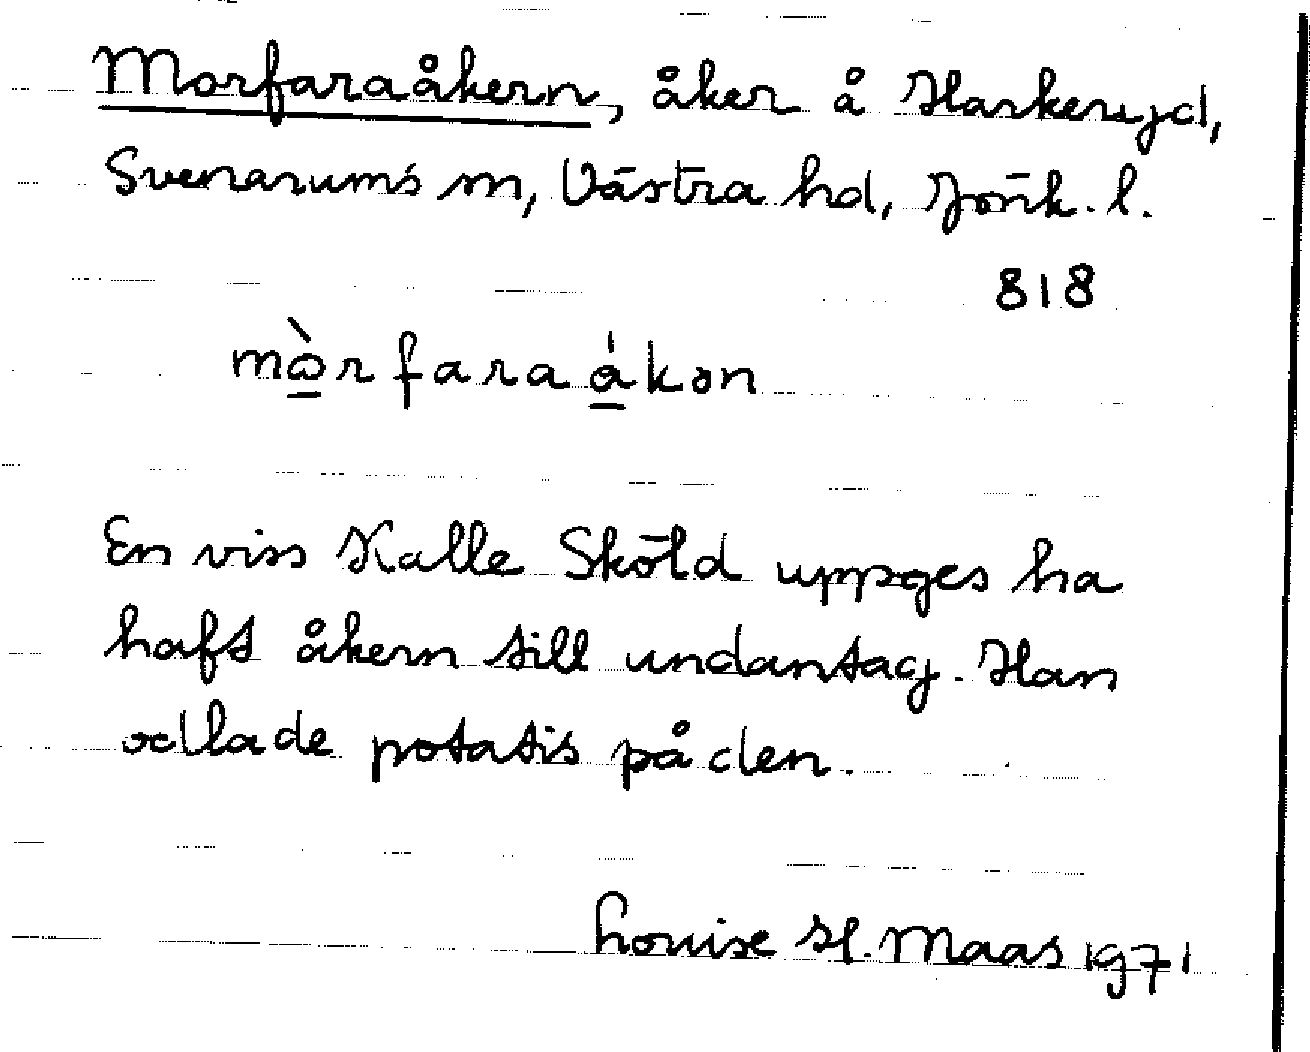 Morfaraåkern, åker å Harkeryd,
Svenarums sn, Västra hd, Jönk. l.
818
mò̱rfaraá̱kən
En viss Kalle Sköld uppges ha
haft åkern till undantag. Han
odlade potatis på den.
Louise H. Maas 1971